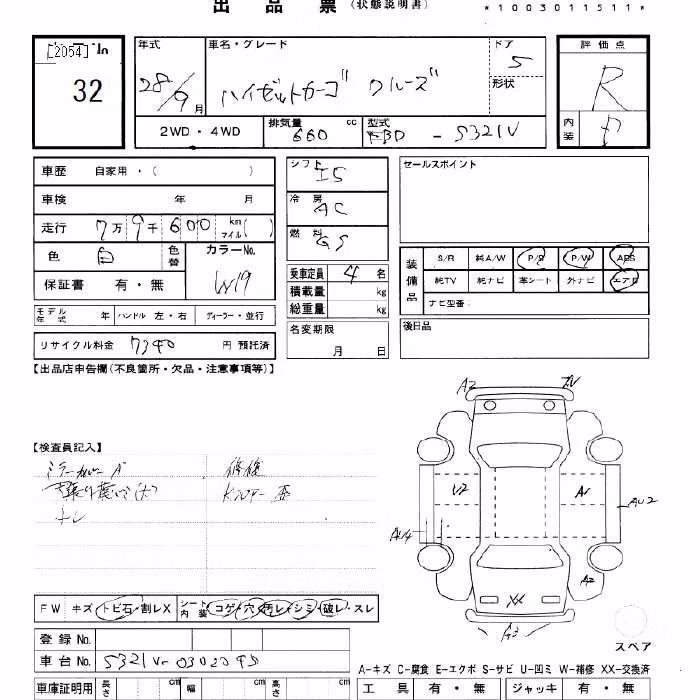 出 品 票 (状態説明書)
*1003011511*
[2054]
32
年式
28/9月
車名・グレード
ハイゼットカーゴ クルーズ
ドア
5
形状
評価点
R
内装
2WD・4WD
排気量 660 cc
型式
S321V
車歴 自家用・( )
車検 年 月
走行 7万9千600 km マイル( )
色 白 色替
カラーNo.
W19
保証書 有・無
モデル年式 年 ハンドル 左・右 ディーラー・並行
リサイクル料金 7340 円 預託済
シフト
冷房 AC
燃料
乗車定員 4 名
積載量 kg
総重量 kg
名変期限
月 日
セールスポイント
装備品
S/R 純A/W P/S P/W ABS
純TV 純ナビ 革シート 外ナビ エアB
ナビ型番:
後日品
【出品店申告欄(不良箇所・欠品・注意事項等)】
【検査員記入】
修復
A2
U2
A1
AU2
AU4
A2
XX
A3
スペア
FW キズ・トビ石・割レX シート内装 コゲ・穴・汚レ・シミ・破レ・スレ
登録 No.
車台 No. S321V-0302090
車庫証明用 長さ cm 幅 cm 高さ cm
A-キズ C-腐食 E-エクボ S-サビ U-凹ミ W-補修 XX-交換済
工具 有・無 ジャッキ 有・無